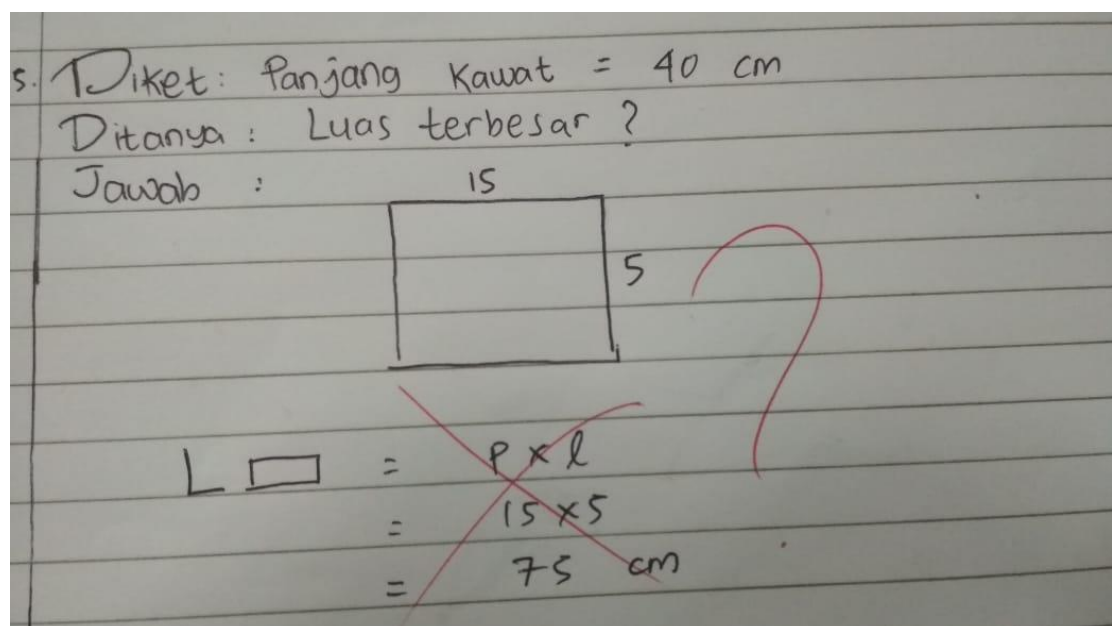 5. Diket: Panjang Kawat = 40 cm
Ditanya : Luas terbesar ?
Jawab :
15
5
L ▭ = P x l
= 15 x 5
= 75 cm
?